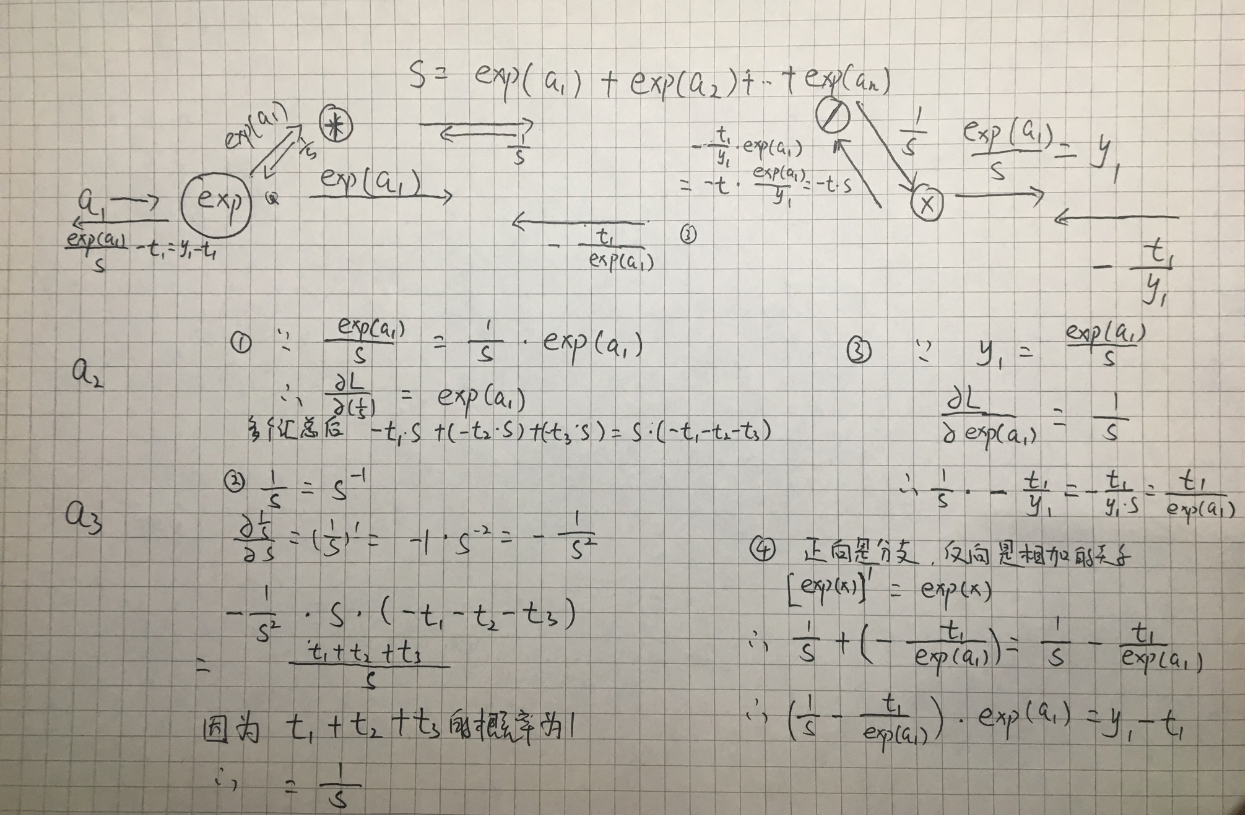 S = exp(a₁) + exp(a₂) + ·· + exp(aₙ)
exp(a₁)
1/S
-t₁/y₁ · exp(a₁)
= -t · exp(a₁)/y₁ = -t·s
1/S
exp(a₁)/S = y₁
a₁
exp
exp(a₁)
exp(a₁)/S - t₁ = y₁ - t₁
- t₁/exp(a₁)
③
- t₁/y₁
a₂
① ∵ exp(a₁)/S = 1/S · exp(a₁)
∴ ∂L/∂(1/S) = exp(a₁)
汇总后 -t₁·S + (-t₂·S) + (t₃·S) = S·(-t₁-t₂-t₃)
a₃
② 1/S = S⁻¹
∂(1/S)/∂S = (1/S)' = -1·S⁻² = -1/S²
-1/S² · S · (-t₁ - t₂ - t₃)
= (t₁ + t₂ + t₃)/S
因为 t₁ + t₂ + t₃ 的概率为1
∴ = 1/S
③ ∵ y₁ = exp(a₁)/S
∂L/∂exp(a₁) = 1/S
∴ 1/S · - t₁/y₁ = - t₁/(y₁·S) = t₁/exp(a₁)
④ 正向是分支,反向是相加的关系
[exp(x)]' = exp(x)
∴ 1/S + (- t₁/exp(a₁)) = 1/S - t₁/exp(a₁)
∴ (1/S - t₁/exp(a₁)) · exp(a₁) = y₁ - t₁